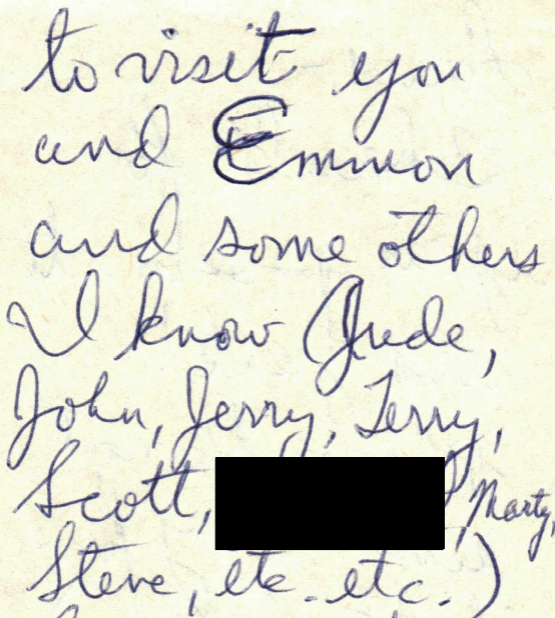 to visit you
and Emmon
and some others
I know (Jude,
John, Jerry, Terry,
Scott, , Marty,
Steve, etc. etc.)